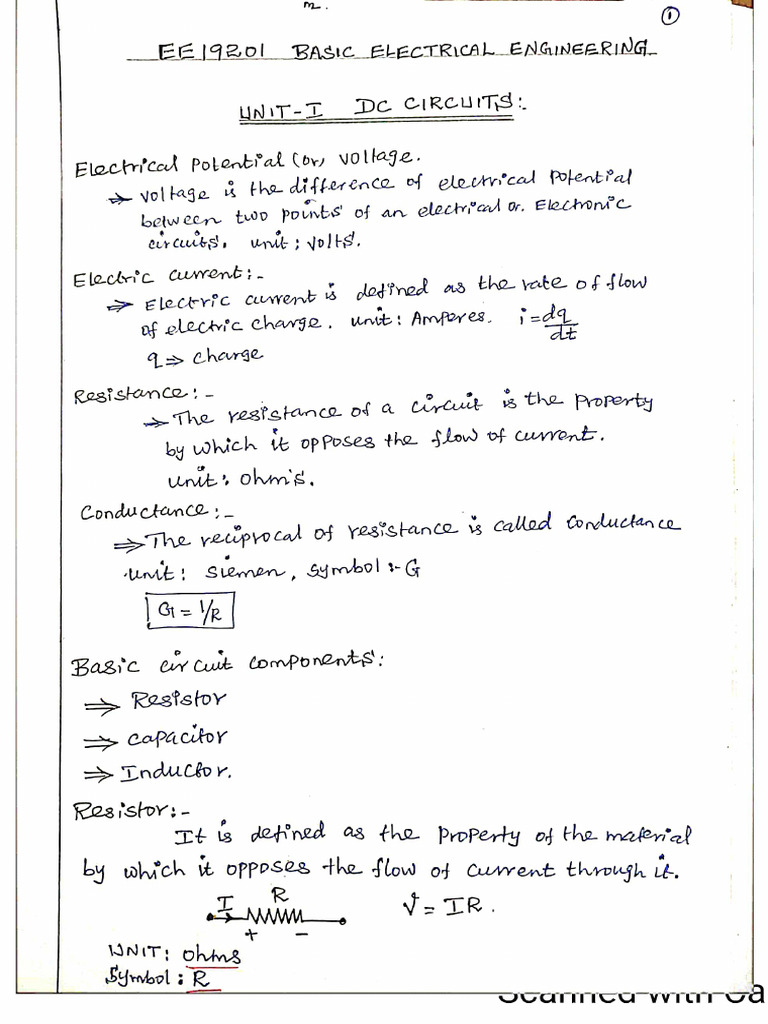 ①
EE19201 BASIC ELECTRICAL ENGINEERING
UNIT-I DC CIRCUITS:-
Electrical Potential (or) Voltage.
→ Voltage is the difference of electrical potential
between two points of an electrical or. Electronic
circuits. unit: volts.
Electric current:-
⇒ Electric current is defined as the rate of flow
of electric charge. unit: Amperes. i = dq/dt
q ⇒ charge
Resistance:-
→ The resistance of a circuit is the property
by which it opposes the flow of current.
unit: ohm's.
Conductance:-
⇒ The reciprocal of resistance is called conductance
unit: siemen, symbol:- G
G = 1/R
Basic circuit components:
⇒ Resistor
⇒ capacitor
⇒ Inductor.
Resistor:-
It is defined as the property of the material
by which it opposes the flow of current through it.
I R V = IR.
+ −
UNIT: ohms
Symbol: R